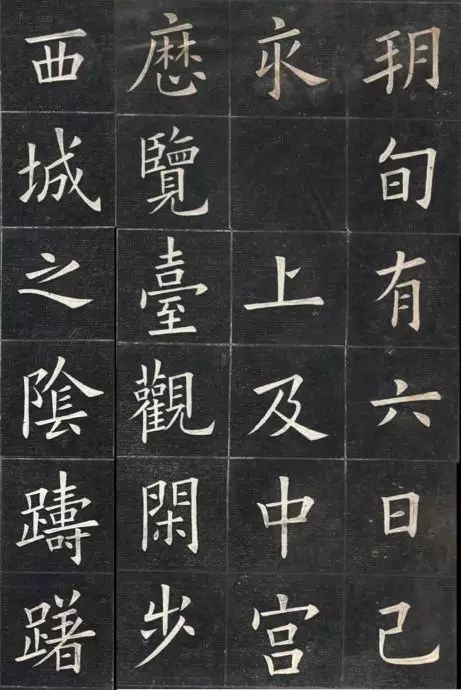 朔旬有六日己
亥 上及中宫
歷覽臺觀閑步
西城之陰躊躇